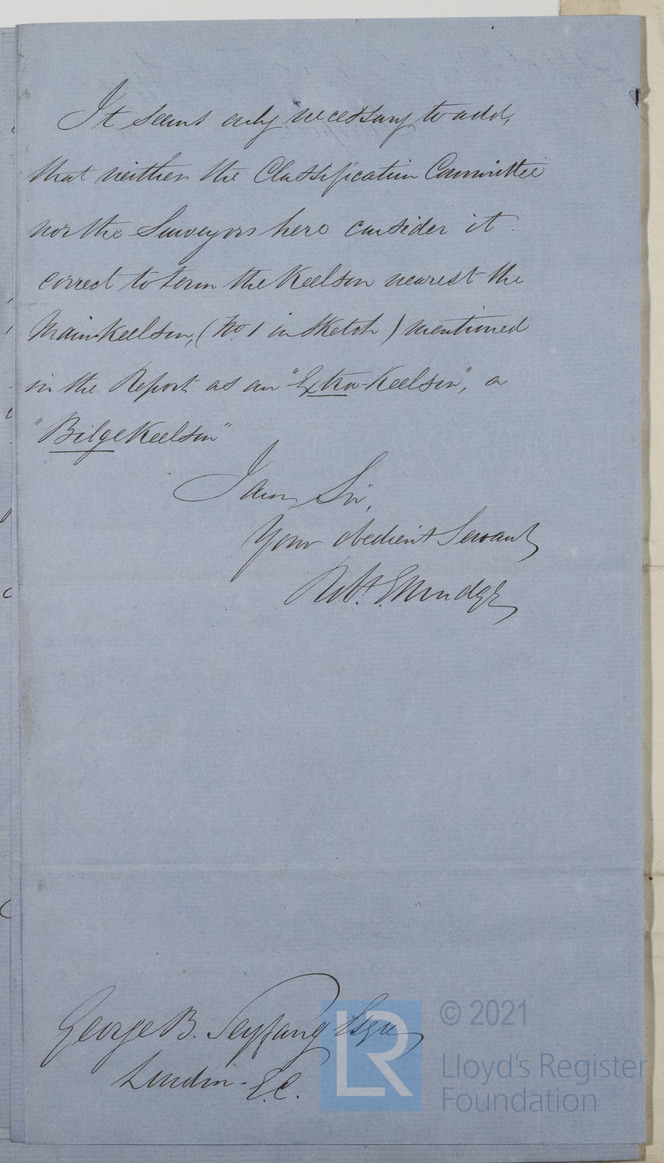 It seems only necessary to add,
that neither the Classification Committee
nor the Surveyors here consider it
correct to term the Keelson nearest the
Main-Keelson, (No. 1 in Sketch) mentioned
in the Report as an "Extra-Keelson", a
"Bilge Keelson"
I am, Sir,
Your obedient Servant
Robt. E Mudge
George B. Seyfang Esqre
London. E.C.
LR
© 2021
Lloyd's Register
Foundation